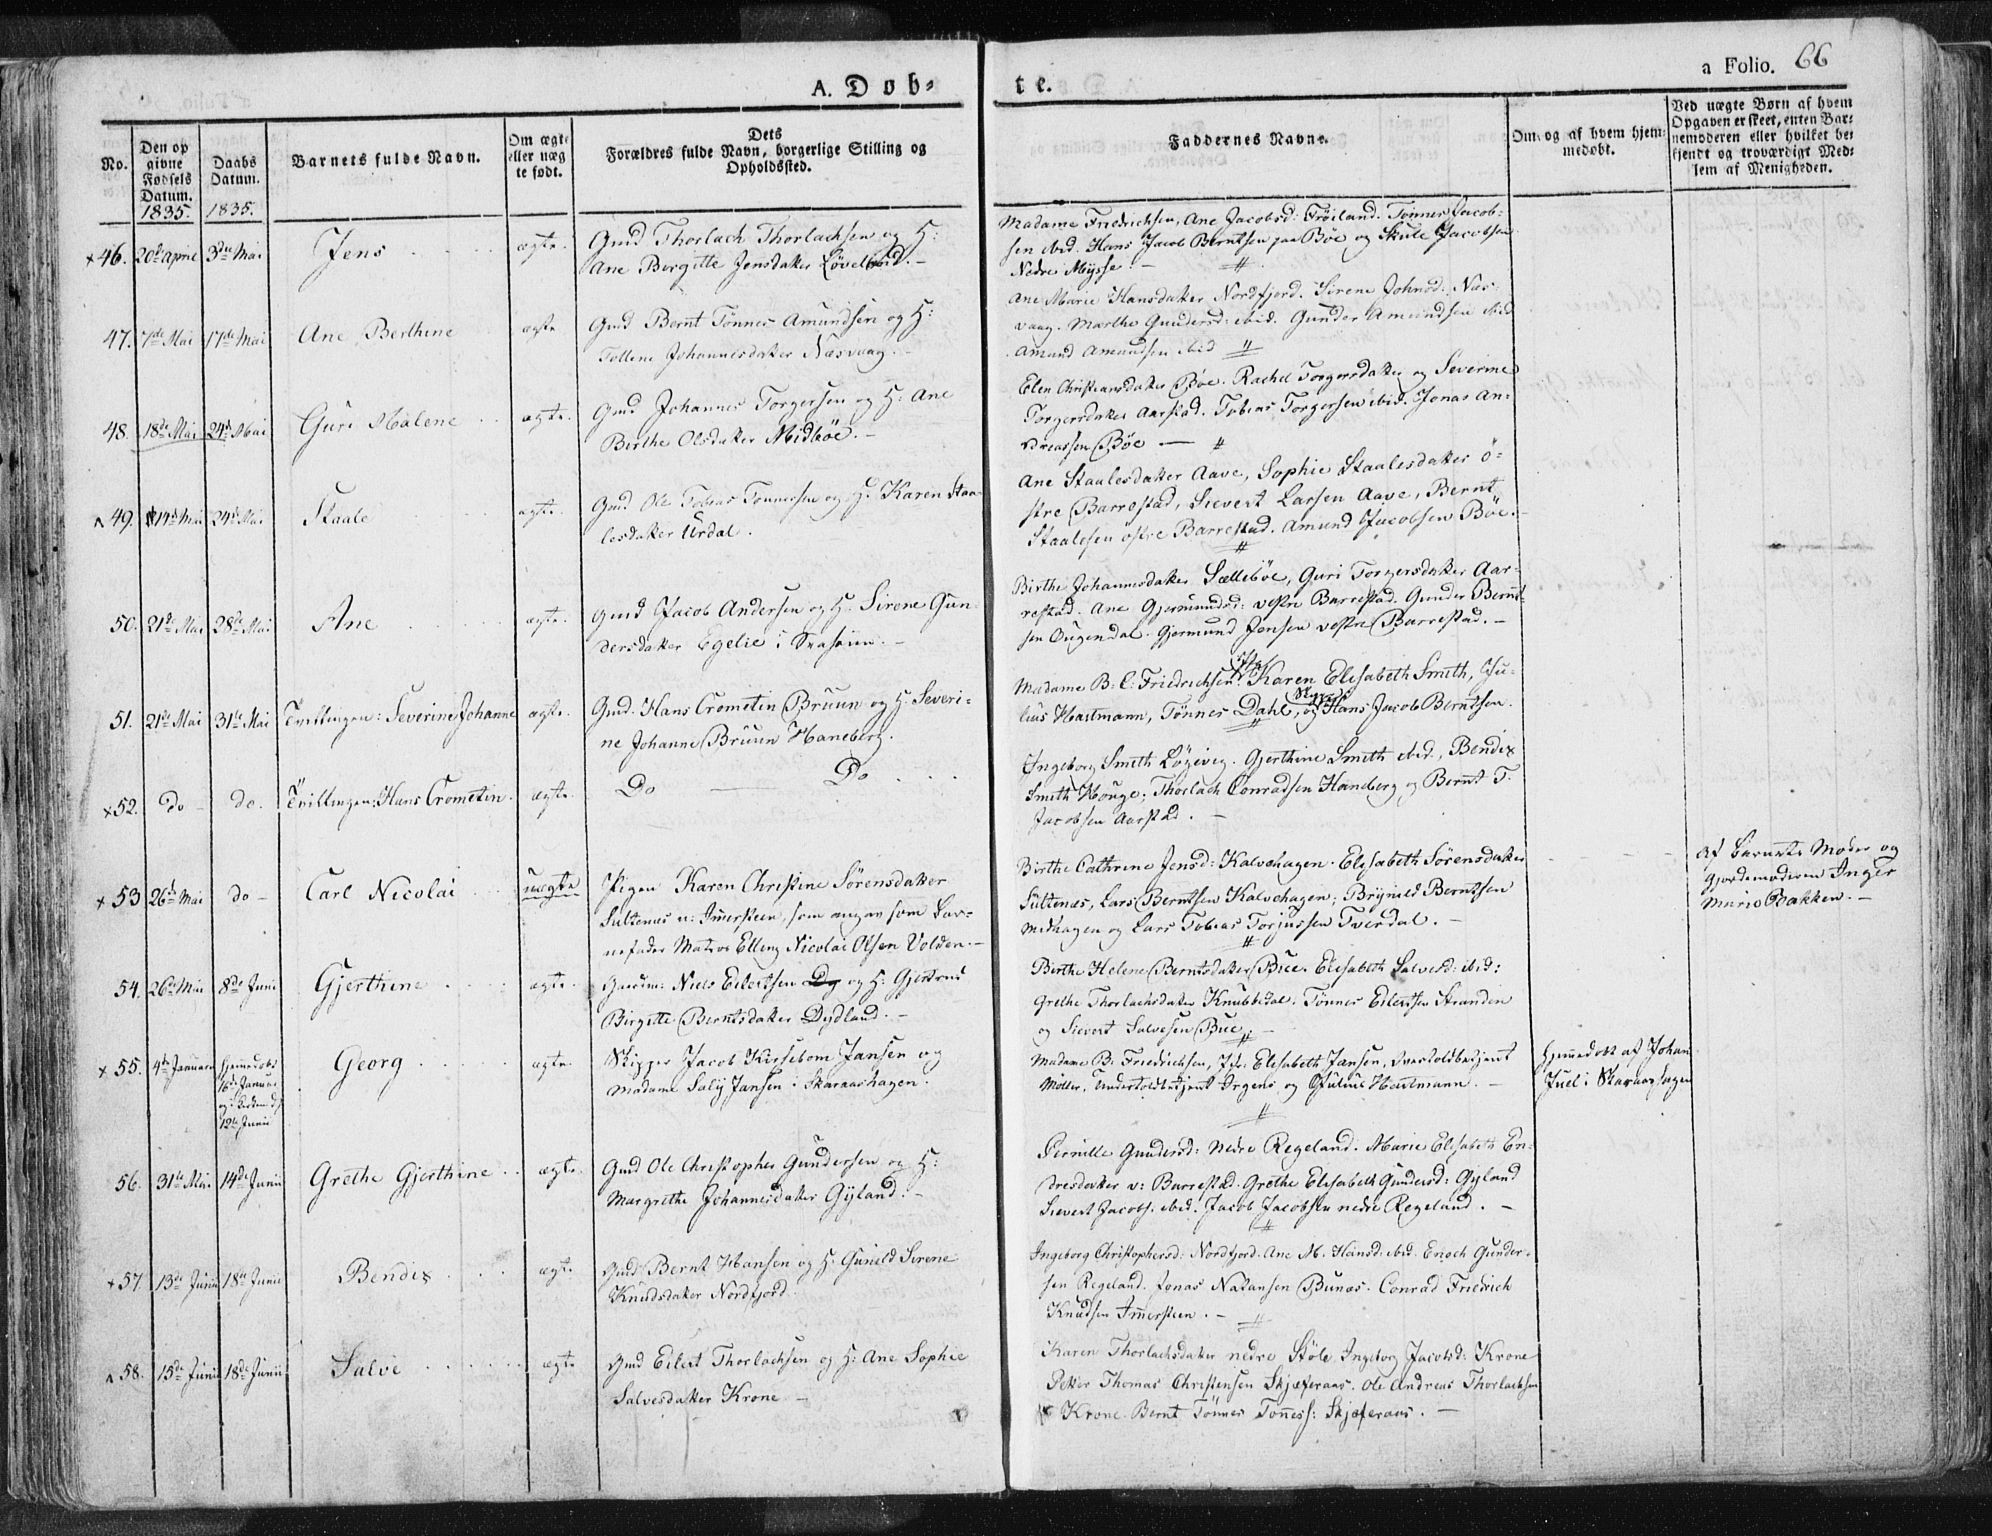 A. Døb-
te.
a Folio. 66
No.
Den op
givne
Fødsels
Datum.
1835.
Daabs
Datum.
1835.
Barnets fulde Navn.
Om ægte
eller uæg
te født.
Dets
Forældres fulde Navn, borgerlige Stilling og
Opholdssted.
Faddernes Navne.
Om og af hvem hjem-
medøbt.
Ved uægte Børn af hvem
Opgaven er skeet, enten Bar-
nemoderen eller hvilket be-
kjendt og troværdigt Med-
lem af Menigheden.
×46. 20de April 3die Mai Jens ægte.
Gmd Thorlach Thorlachsen og H:
Ane Bergitte Jensdatter Løvelbeid.
Madame Friedrichsen, Ane Jacobsd: Frøiland. Tønnes Jacob-
sen ibid. Hans Jacob Berntsen paa Bøe og Skule Jacobsen
Nedre Mysse.
47. 7de Mai 17de Mai Ane Berthine ægte
Gmd Bernt Tønnes Amundsen og H:
Tollene Johannesdatter Næsvaag.
Ane Marie Hansdatter Nordfjord. Sirene Johnsd: Næs-
vaag. Marthe Gundersd: ibid. Gunder Amundsen ibid
Amund Amundsen ibid
48. 18de Mai 24de Mai Guri Malene ægte.
Gmd Johannes Torgersen og H: Ane
Birthe Olsdatter Midbøe.
Elen Christiansdatter Bøe. Rachel Torgersdatter og Severine
Torgersdatter Aarstad. Tobias Torgersen ibid. Jonas An-
dreassen Bøe
49. 14de Mai 24de Mai Staale ægte.
Gmd Ole Tobias Tønnesen og H: Karen Staa-
lesdatter Urdal.
Ane Staalesdatter Aave, Sophie Staalesdatter ø-
stre Barrestad, Sievert Larsen Aave, Bernt
Staalesen østre Barrestad. Amund Jacobsen Bøe.
50. 21de Mai 28de Mai Ane ægte.
Gmd Jacob Andersen og H: Sirene Gun-
dersdatter Egelie i
Birthe Johannesdatter Sællebøe, Guri Torgersdatter Aar-
restad. Ane Gjermundsd: vestre Barrestad. Gunder Bernt-
sen Ougendal. Gjermund Jensen vestre Barrestad.
51. 21de Mai 31te Mai Tvillingen: Severine Johanne ægte.
Gmd. Hans Crometin Bruun og H. Severi-
ne Johanne Bruun Haneberg.
Madame B. C. Friedrichsen. Jfr. Karen Elisabeth Smith, Ju-
lius Hartmann, Tønnes Dahl, og Hans Jacob Berntsen.
×52. do do. Tvillingen: Hans Crometin. ægte.
Do Do
Ingeborg Smith Løgivig. Gjerthine Smith ibid, Bendix
Smith Houge, Thorlach Conradsen Haneberg og Bernt T.
Jacobsen Aarstad.
×53 26de Mai do Carl Nicolai uægte
Pigen Karen Christine Sørensdatter
Sultenæs v: Immersteen, som angav som Bar-
nefader Matros Elling Nicolai Olsen Volden.
Birthe Cathrine Jensd: Kalvehagen. Elisabeth Sørensdatter
Sultenæs, Lars Berntsen Kalvehagen, Brynild Berntsen
Midhagen og Lars Tobias Torjussen Tverdal.
Af Barnets Moder og
Gjordemoderen Inger
Marie Bakken.
54. 26de Mai 8de Juni Gjerthine ægte.
Gaardm: Niels Eilertsen Dy og H: Gjertrud
Birgitte Berntsdatter Dydland.
Birthe Helene Berntsdatter Bue. Elisabeth Salvesd: ibid:
Grethe Thorlachsdatter Knubbedal. Tønnes Eilertsen Stranden
og Sievert Salvesen Bue.
×55. 4de Januari hjemmedøbt
16de Januar
og i Kirken d.
12te Junii
Georg ægte.
Skipper Jacob Kirsebom Jansen og
Madame Saly Jansen i Skaraashagen.
Madame B: Friedrichsen, Jfr: Elisabeth Jansen, Overtoldbetjent
Møller, Undertoldbetjent Irgens og Julius Hartmann.
Hjemmedøbt af Johan
Juel i Skaraashagen
56. 31te Mai 14de Junii Grethe Gjerthine ægte.
Gmd Ole Christopher Gundersen og H:
Margrethe Johannesdatter Gyland.
Pernille Gundersd: Nedre Regeland. Marie Elisabeth En-
dresdatter v: Barrestad. Grethe Elisabeth Gundersd: Gyland
Sievert Jacobs. ibid. Jacob Jacobsen nedre Regeland.
×57. 13de Junii 18de Junii Bendix ægte.
Gmd Bernt Hansen og H: Gunild Sirene
Knudsdatter Nordfjord.
Ingeborg Christophersd: Nordfjord. Ane M. Hansd: ibid. Enoch Gunder-
sen Regeland. Jonas Natansen Bunæs. Conrad Friedrich
Knudsen Immersteen.
58. 15de Junii 18de Junii Salve ægte
Gmd Eilert Thorlachsen og H: Ane Sophie
Salvesdatter Krone
Karen Thorlachsdatter nedre Støle Ingeborg Jacobsd: Krone
Petter Thomas Christensen Skjæferaas. Ole Andreas Thorlachsen
Krone. Bernt Tønnes Tønness: Skjæferaas.